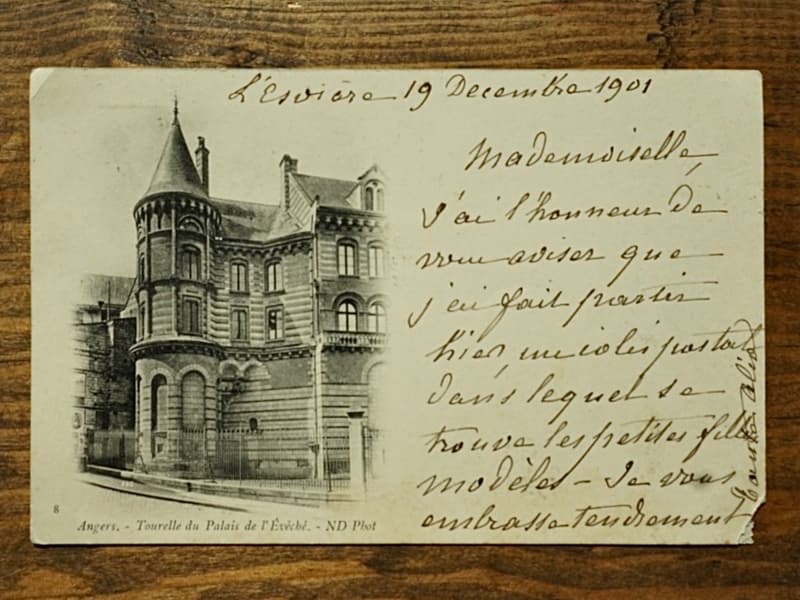 L'Esvière 19 Decembre 1901
Mademoiselle
J'ai l'honneur de
vous aviser que
j'ai fait partir
hier, un colis postal
dans lequel se
trouve les petites filles
modèles - Je vous
embrasse tendrement
8
Angers. - Tourelle du Palais de l'Évêché. - ND Phot